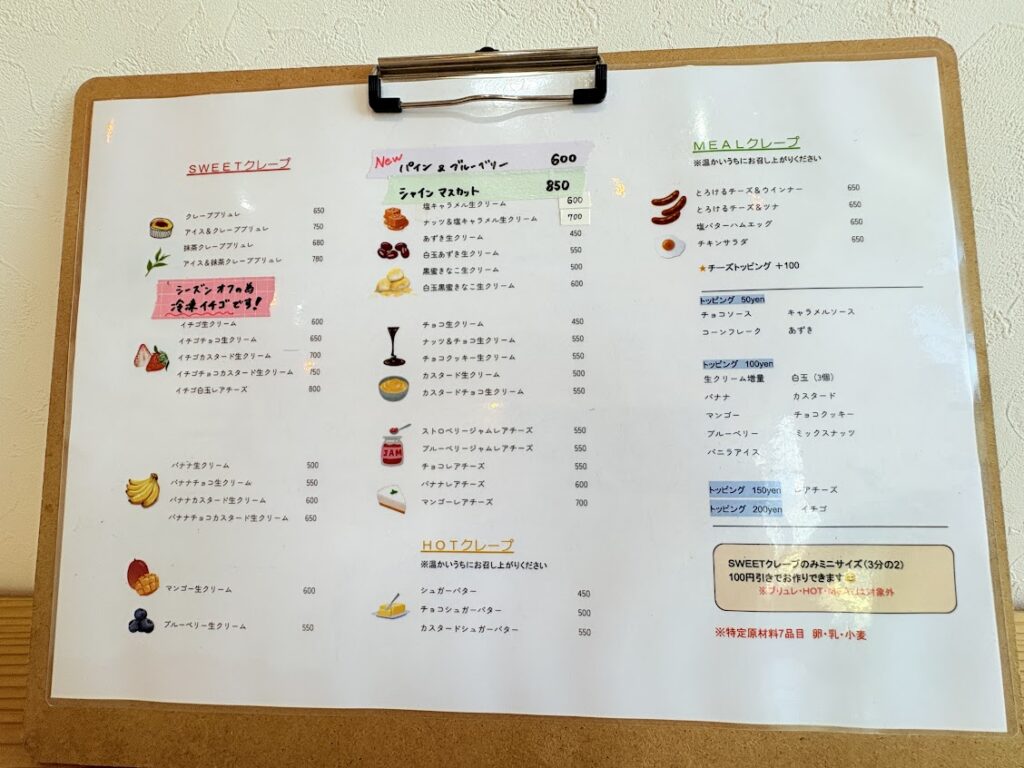 SWEETクレープ
クレープブリュレ 650
アイス＆クレープブリュレ 750
抹茶クレープブリュレ 680
アイス＆抹茶クレープブリュレ 780
シーズン オフの為
冷凍イチゴです!
イチゴ生クリーム 600
イチゴチョコ生クリーム 650
イチゴカスタード生クリーム 700
イチゴチョコカスタード生クリーム 750
イチゴ白玉レアチーズ 800
バナナ生クリーム 500
バナナチョコ生クリーム 550
バナナカスタード生クリーム 600
バナナチョコカスタード生クリーム 650
マンゴー生クリーム 600
ブルーベリー生クリーム 550
New パイン & ブルーベリー 600
シャイン マスカット 850
塩キャラメル生クリーム 600
ナッツ＆塩キャラメル生クリーム 700
あずき生クリーム 450
白玉あずき生クリーム 550
黒蜜きなこ生クリーム 500
白玉黒蜜きなこ生クリーム 600
チョコ生クリーム 450
ナッツ＆チョコ生クリーム 550
チョコクッキー生クリーム 550
カスタード生クリーム 500
カスタードチョコ生クリーム 550
JAM
ストロベリージャムレアチーズ 550
ブルーベリージャムレアチーズ 550
チョコレアチーズ 550
バナナレアチーズ 600
マンゴーレアチーズ 700
HOTクレープ
※温かいうちにお召し上がりください
シュガーバター 450
チョコシュガーバター 500
カスタードシュガーバター 550
MEALクレープ
※温かいうちにお召し上がりください
とろけるチーズ＆ウインナー 650
とろけるチーズ＆ツナ 650
塩バターハムエッグ 650
チキンサラダ 650
★チーズトッピング ＋100
トッピング 50yen
チョコソース キャラメルソース
コーンフレーク あずき
トッピング 100yen
生クリーム増量 白玉（3個）
バナナ カスタード
マンゴー チョコクッキー
ブルーベリー ミックスナッツ
バニラアイス
トッピング 150yen レアチーズ
トッピング 200yen イチゴ
SWEETクレープのみミニサイズ（3分の2）
100円引きでお作りできます😊
※ブリュレ・HOT・MEALは対象外
※特定原材料7品目 卵・乳・小麦